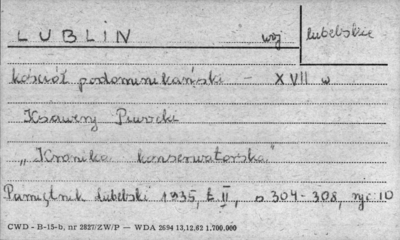 LUBLIN woj lubelskie
kościół podominikański - XVII w
Ksawery Piwocki
„Kronika konserwatorska"
Pamiętnik lubelski 1935, t. II, s 304-308, ryc 10
CWD - B-15-b, nr 2827/ZW/P — WDA 2694 13,12,62 1.700,000